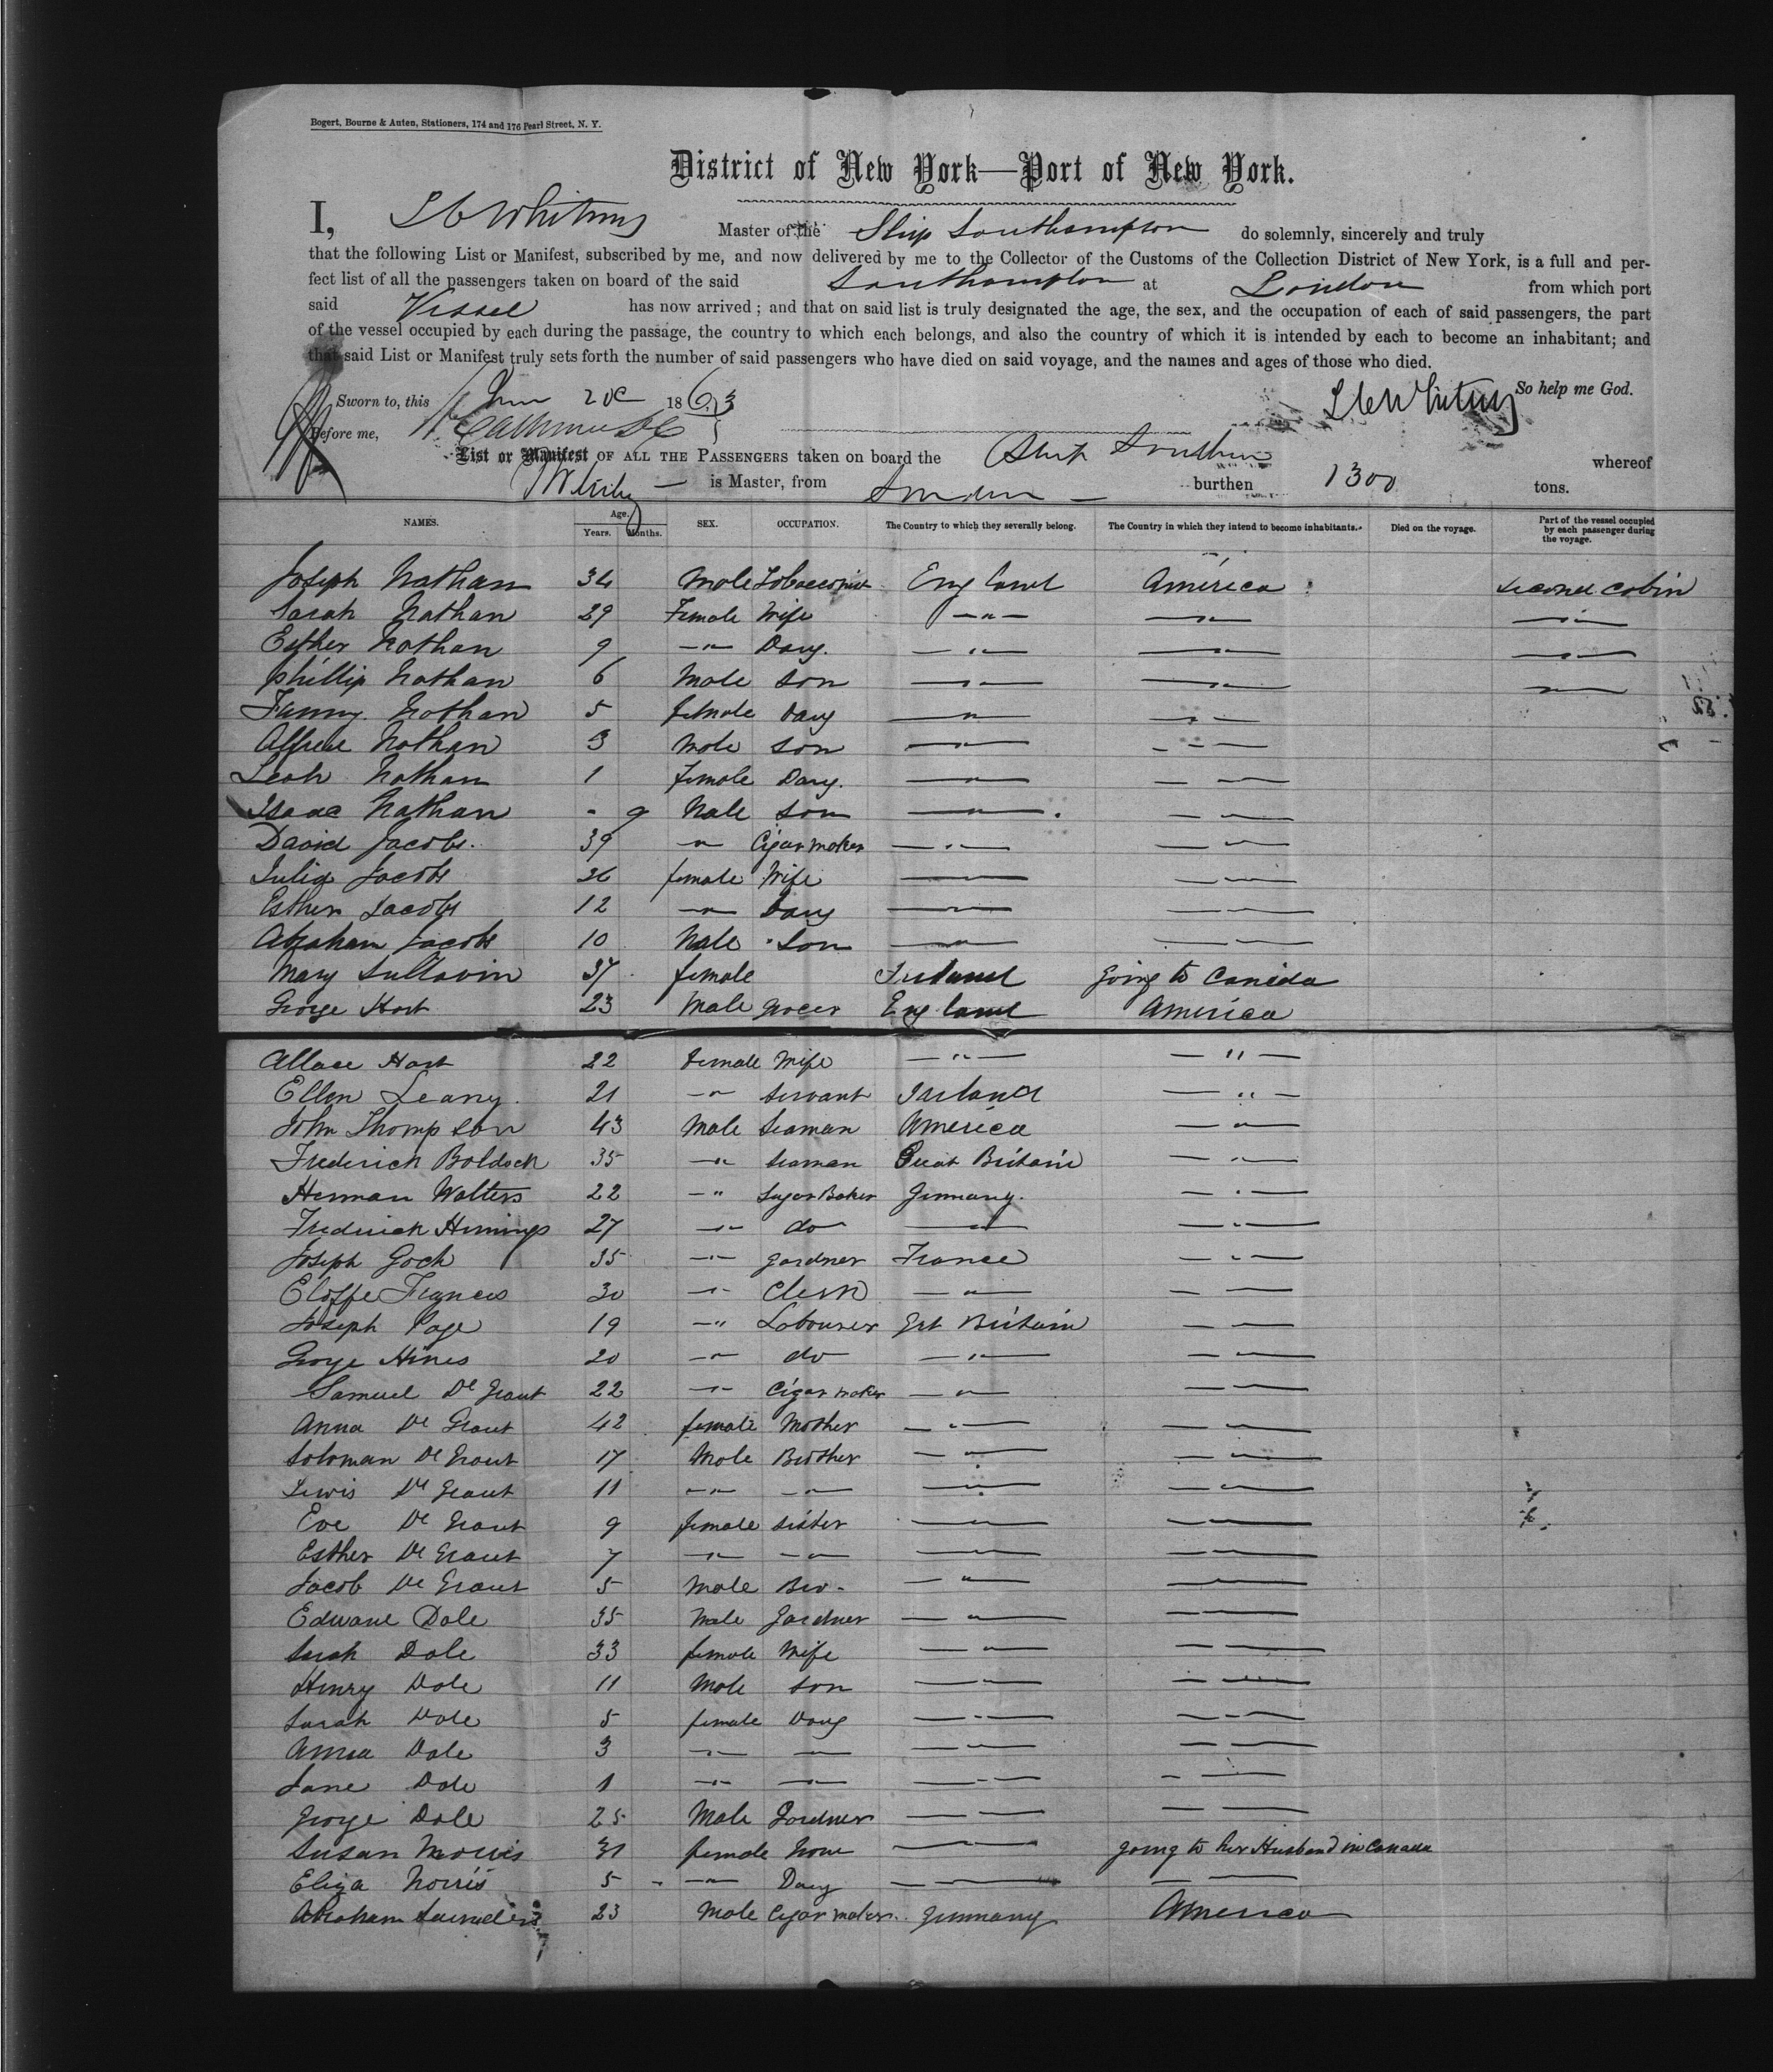 Bogert, Bourne & Auten, Stationers, 174 and 176 Pearl Street, N. Y.
District of New York—Port of New York.
I, Whitney Master of the Ship Southampton do solemnly, sincerely and truly
that the following List or Manifest, subscribed by me, and now delivered by me to the Collector of the Customs of the Collection District of New York, is a full and per-
fect list of all the passengers taken on board of the said Southampton at London from which port
said Vessel has now arrived; and that on said list is truly designated the age, the sex, and the occupation of each of said passengers, the part
of the vessel occupied by each during the passage, the country to which each belongs, and also the country of which it is intended by each to become an inhabitant; and
that said List or Manifest truly sets forth the number of said passengers who have died on said voyage, and the names and ages of those who died.
So help me God.
Sworn to, this 1863 Whitney
Before me,
List or Manifest OF ALL THE PASSENGERS taken on board the Ship whereof
is Master, from London burthen 1300 tons.
NAMES. Age. Years. Months. SEX. OCCUPATION. The Country to which they severally belong. The Country in which they intend to become inhabitants. Died on the voyage. Part of the vessel occupied by each passenger during the voyage.
Joseph Nathan 34 Male Tobacconist England America Second Cabin
Sarah Nathan 29 Female Wife — " — — " — — " —
Esther Nathan 9 — " — Daug. — " — — " — — " —
Phillip Nathan 6 Male Son — " — — " — — " —
Fanny Nathan 5 female Daug — " — — " —
Alfred Nathan 3 Male Son — " — — " —
Leah Nathan 1 female Daug. — " — — " —
Isaac Nathan - 9 Male Son — " — — " —
David Jacobs. 39 — " — Cigar maker — " — — " —
Julia Jacobs 36 female Wife — " — — " —
Esther Jacobs 12 — " — Daug — " — — " —
Abraham Jacobs 10 Male Son — " — — " —
Mary Sullavin 37 female Ireland going to Canada
George Hart 23 Male grocer England America
Allace Hart 22 Female Wife — " — — " —
Ellen Leary 21 — " — Servant Ireland — " —
John Thompson 43 Male Seaman America — " —
Frederick Boldock 35 — " — Seaman Great Britain — " —
Herman Wolters 22 — " — Sugar Baker Germany. — " —
Frederick 27 — " — do — " — — " —
Joseph Goch 35 — " — Gardner France — " —
30 — " — Clerk — " — — " —
Joseph Page 19 — " — Labourer Grt Britain — " —
George Hines 20 — " — do — " — — " —
Samuel De Graut 22 — " — Cigar maker — " — — " —
Anna De Graut 42 female Mother — " — — " —
Soloman De Graut 17 Male Brother — " — — " —
Lewis De Graut 11 — " — — " — — " — — " —
Eve De Graut 9 female Sister — " — — " —
Esther De Graut 7 — " — — " — — " — — " —
Jacob De Graut 5 Male Bro - — " — — " —
Edward Dale 35 Male Gardner — " — — " —
Sarah Dale 33 female Wife — " — — " —
Henry Dale 11 Male Son — " — — " —
Sarah Dale 5 female Daug — " — — " —
Anna Dale 3 — " — — " — — " — — " —
Jane Dale 1 — " — — " — — " — — " —
George Dale 25 Male Gardner — " — — " —
Susan Morris 31 female None — " — going to her Husband in Canada
Eliza Norris 5 — " — Daug — " — — " —
Abraham Saunders 23 Male Cigar maker Germany America